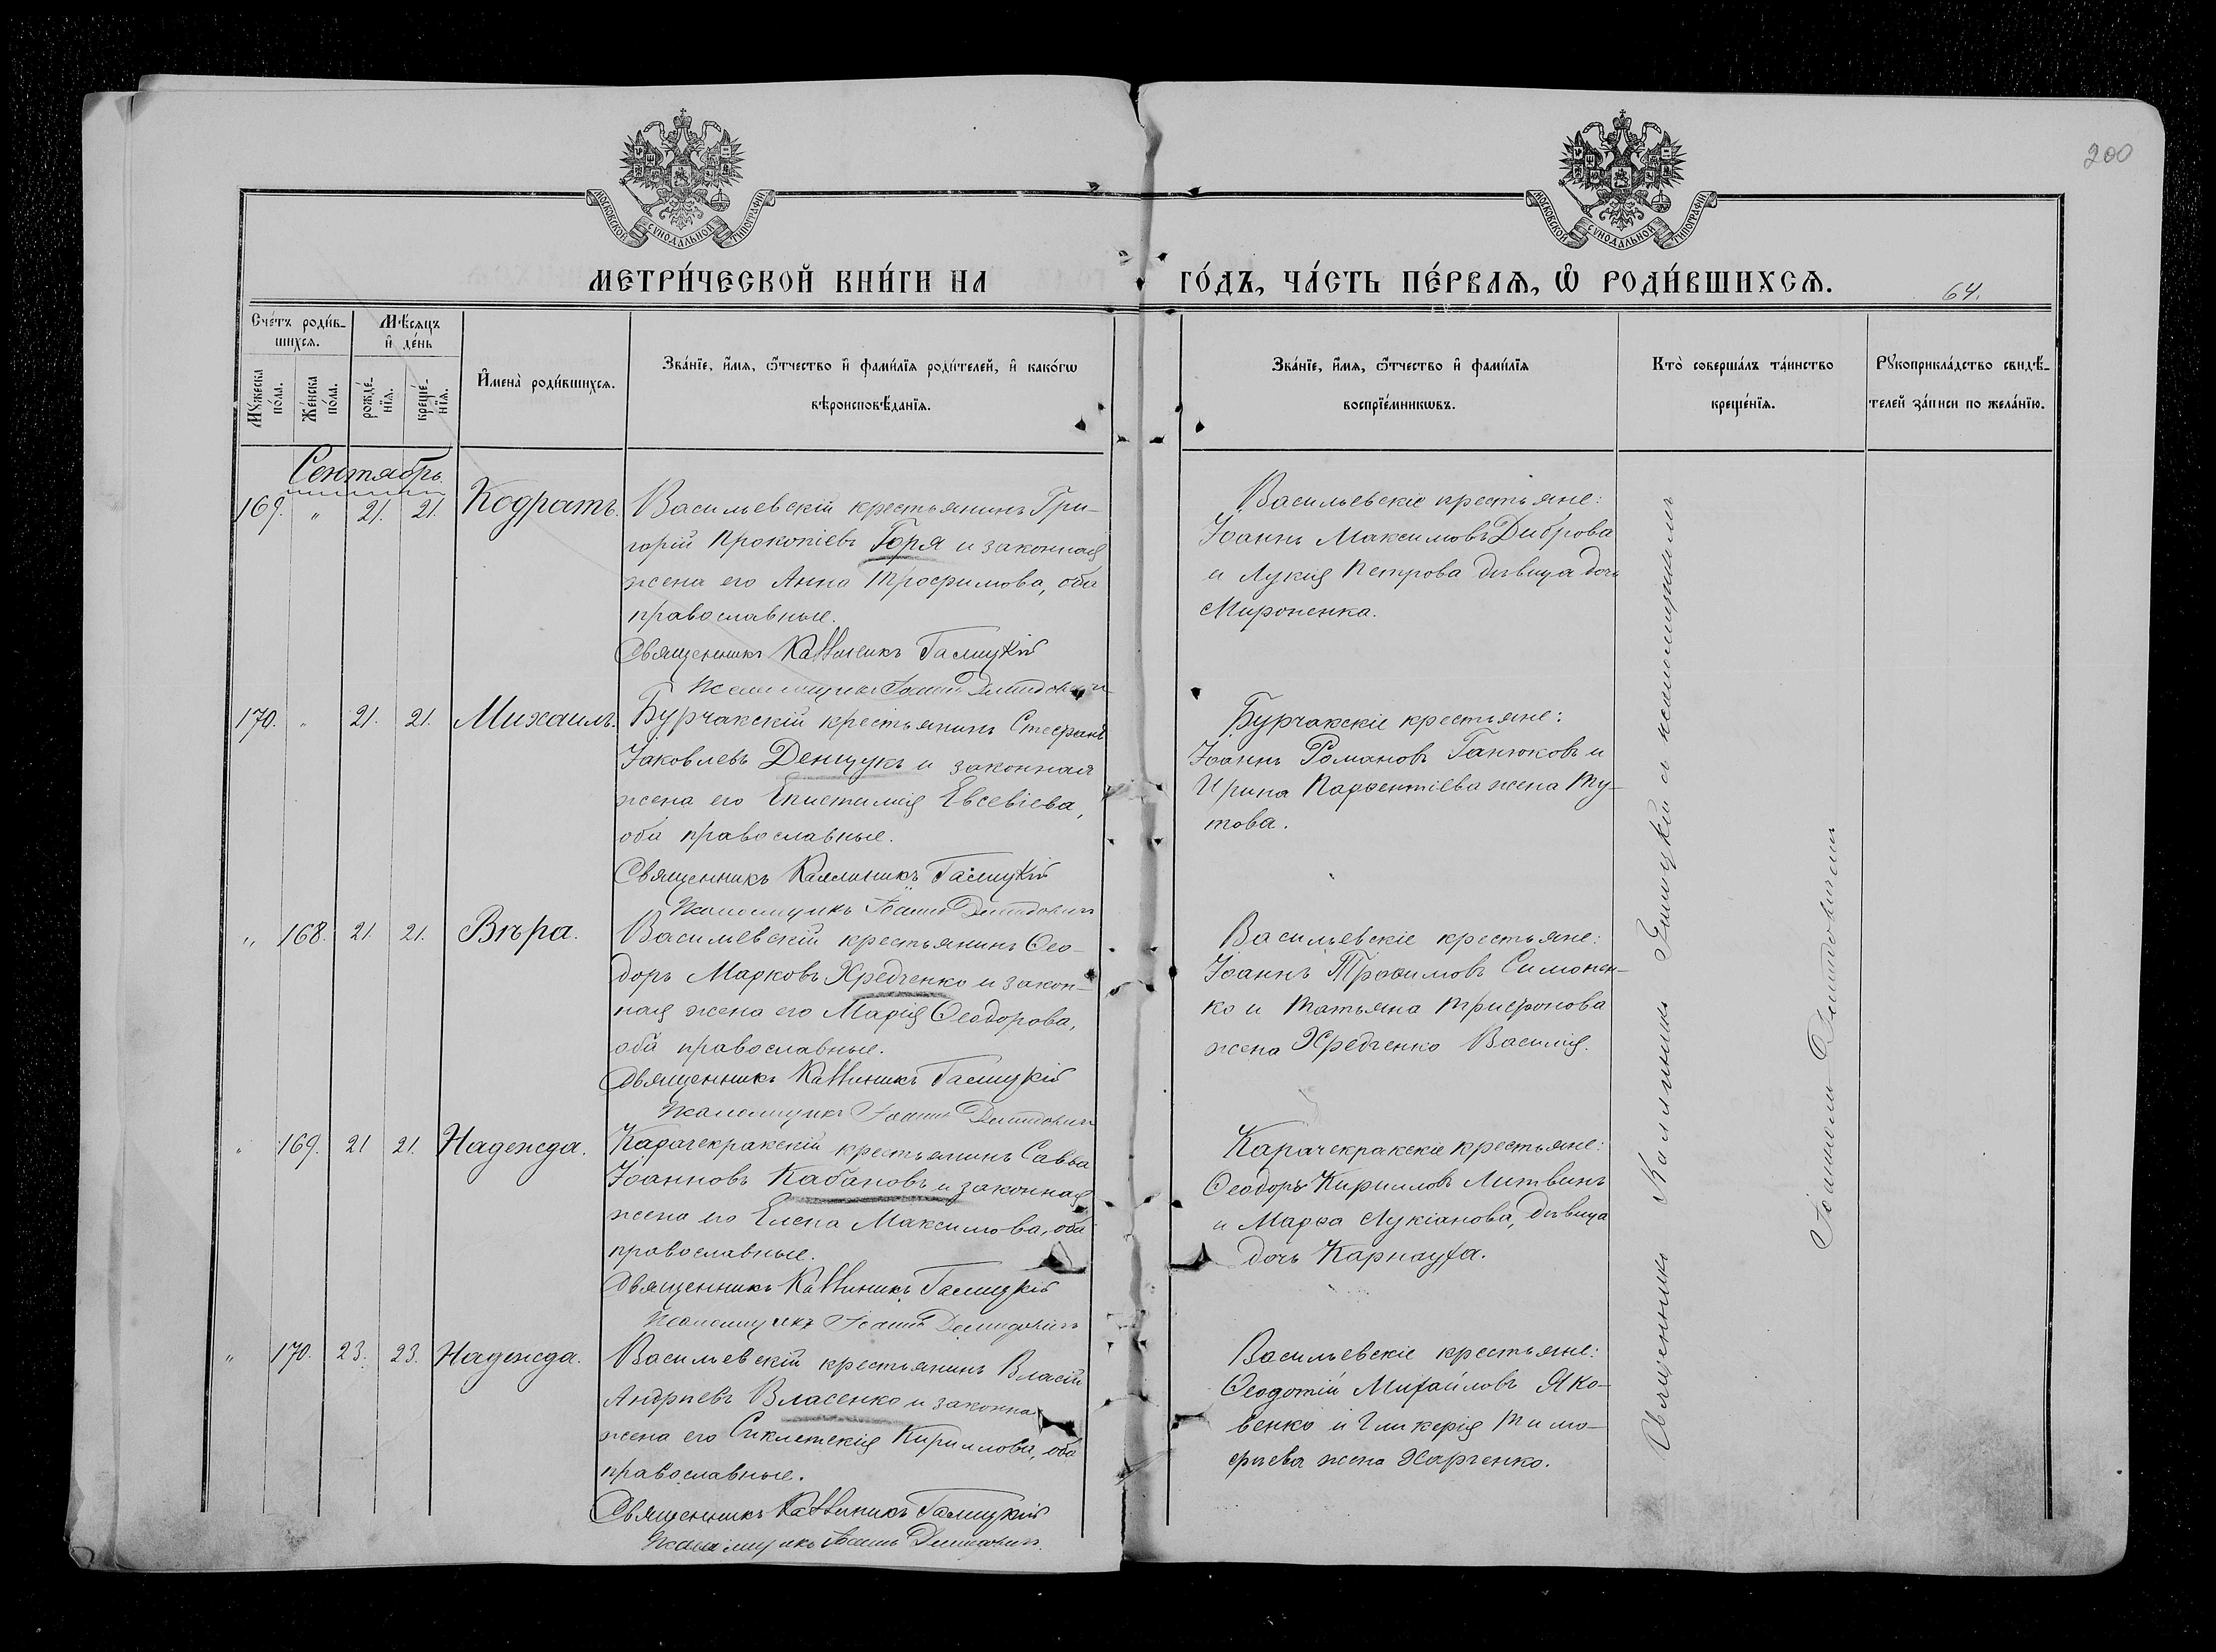 200
МОСКОВСКОЙ СѴНОДАЛЬНОЙ ТИПОГРАФІИ
МОСКОВСКОЙ СѴНОДАЛЬНОЙ ТИПОГРАФІИ
МЕТРИ́ЧЕСКОЙ КНИ́ГИ НА ГО́ДЪ, ЧА́СТЬ ПЕ́РВАѦ, Ѡ҆ РОДИ́ВШИХСѦ.
64.
Сче́тъ роди́в-
шихсѧ.
Мѣ́сѧцъ
и҆ де́нь
Мꙋ́жеска
по́ла.
Же́нска
по́ла.
рожде́-
нїѧ.
креще́-
нїѧ.
И҆мена̀ роди́вшихсѧ.
Зва́нїе, и҆́мѧ, ѻ҆́тчество и҆ фами́лїѧ роди́телей, и҆ како́гѡ
вѣроисповѣ́данїѧ.
Зва́нїе, и҆́мѧ, ѻ҆́тчество и҆ фами́лїѧ
воспрїе́мникѡвъ.
Кто̀ соверша́лъ та́инство
креще́нїѧ.
Рꙋкоприкла́дство свидѣ́-
телей за́писи по жела́нїю.
Сентябрь.
169. " 21. 21. Кодратъ.
Васильевскій крестьянинъ Гри-
горій Прокопіевъ Горя и законная
жена его Анна Трофимова, оба
православные.
Священникъ Каллиникъ Галицкій
Псаломщикъ Іоаннъ Демидовичъ
Васильевскіе крестьяне:
Іоаннъ Максимовъ Диброва
и Лукія Петрова дѣвица дочь
Мироненка.
170. " 21. 21. Михаилъ.
Бурчакскій крестьянинъ Стефанъ
Іаковлевъ Денщукъ и законная
жена его Епистимія Евсевіева,
оба православные.
Священникъ Каллиникъ Галицкій
Псаломщикъ Іоаннъ Демидовичъ
Бурчакскіе крестьяне:
Іоаннъ Романовъ Ганюковъ и
Ирина Парѳентіева жена Ту-
това.
" 168. 21. 21. Вѣра.
Васильевскій крестьянинъ Ѳео-
доръ Марковъ Хредченко и закон-
ная жена его Марія Ѳеодорова,
оба православные.
Священникъ Каллиникъ Галицкій
Псаломщикъ Іоаннъ Демидовичъ
Васильевскіе крестьяне:
Іоаннъ Трофимовъ Симонен-
ко и Татьяна Трифонова
жена Хредченко Василія.
" 169. 21 21. Надежда.
Карачекракскій крестьянинъ Савва
Іоанновъ Кабановъ и законная
жена его Елена Максимова, оба
православные.
Священникъ Каллиникъ Галицкій
Псаломщикъ Іоаннъ Демидовичъ
Карачекракскіе крестьяне:
Ѳеодоръ Кирилловъ Литвинъ
и Марѳа Лукіанова, дѣвица
дочь Карнауха.
" 170. 23. 23. Надежда.
Васильевскій крестьянинъ Власій
Андреевъ Власенко и законна
жена его Синклетикія Кириллова, оба
православные.
Священникъ Каллиникъ Галицкій
Псаломщикъ Іоаннъ Демидовичъ
Васильевскіе крестьяне:
Ѳеодотій Михайловъ Яко-
венко и Гликерія Тимо-
фѣева жена Харченко.
Священникъ Каллиникъ Галицкій съ псаломщикомъ
Іоанномъ Демидовичемъ